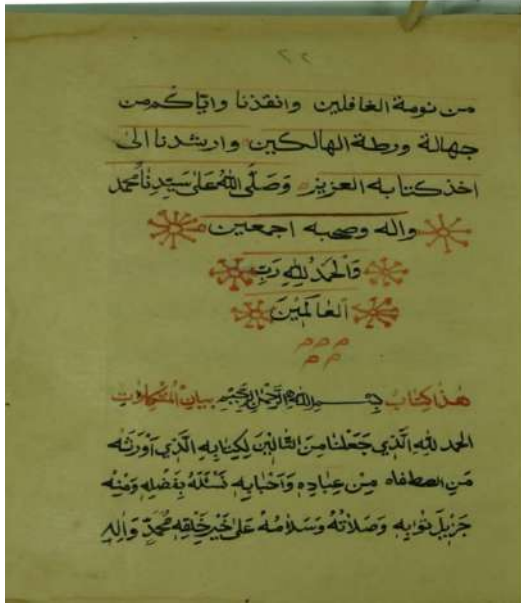 ٢٢
من نومة الغافلين وانقذنا واياكم من
جهالة ورطة الهالكين وارشدنا الى
اخذ كتابه العزيز وَصَلَّى اللهُ عَلى سَيّدِنا محمد
واله وصحبه اجمعين
وَالحَمدُ لِلّهِ رَبِّ
العَالَمِيْنَ
م م م
م م
هٰذا كِتَابُ بِسْــــمِ اللهِ الرَّحْمٰنِ الرَّحِيْمِ بيانِ
الحمد للهِ الَّذِي جَعَلَنا مِنَ التَّالِيْنَ لِكِتَابِهِ الَّذِي اَوْرَثَه
مَنِ اصطفاه مِنْ عِبَادِه وَاَحْبَابِهِ نَسْئَلُهُ بِفَضْلِهِ وَمَنِّهِ
جَزِيْلَ ثَوَابِهِ وَصَلَاتُهُ وَسَلَامُهُ عَلىٰ خَيْرِ خَلْقِهِ مُحَمَّدٍ وَاٰلِهِ